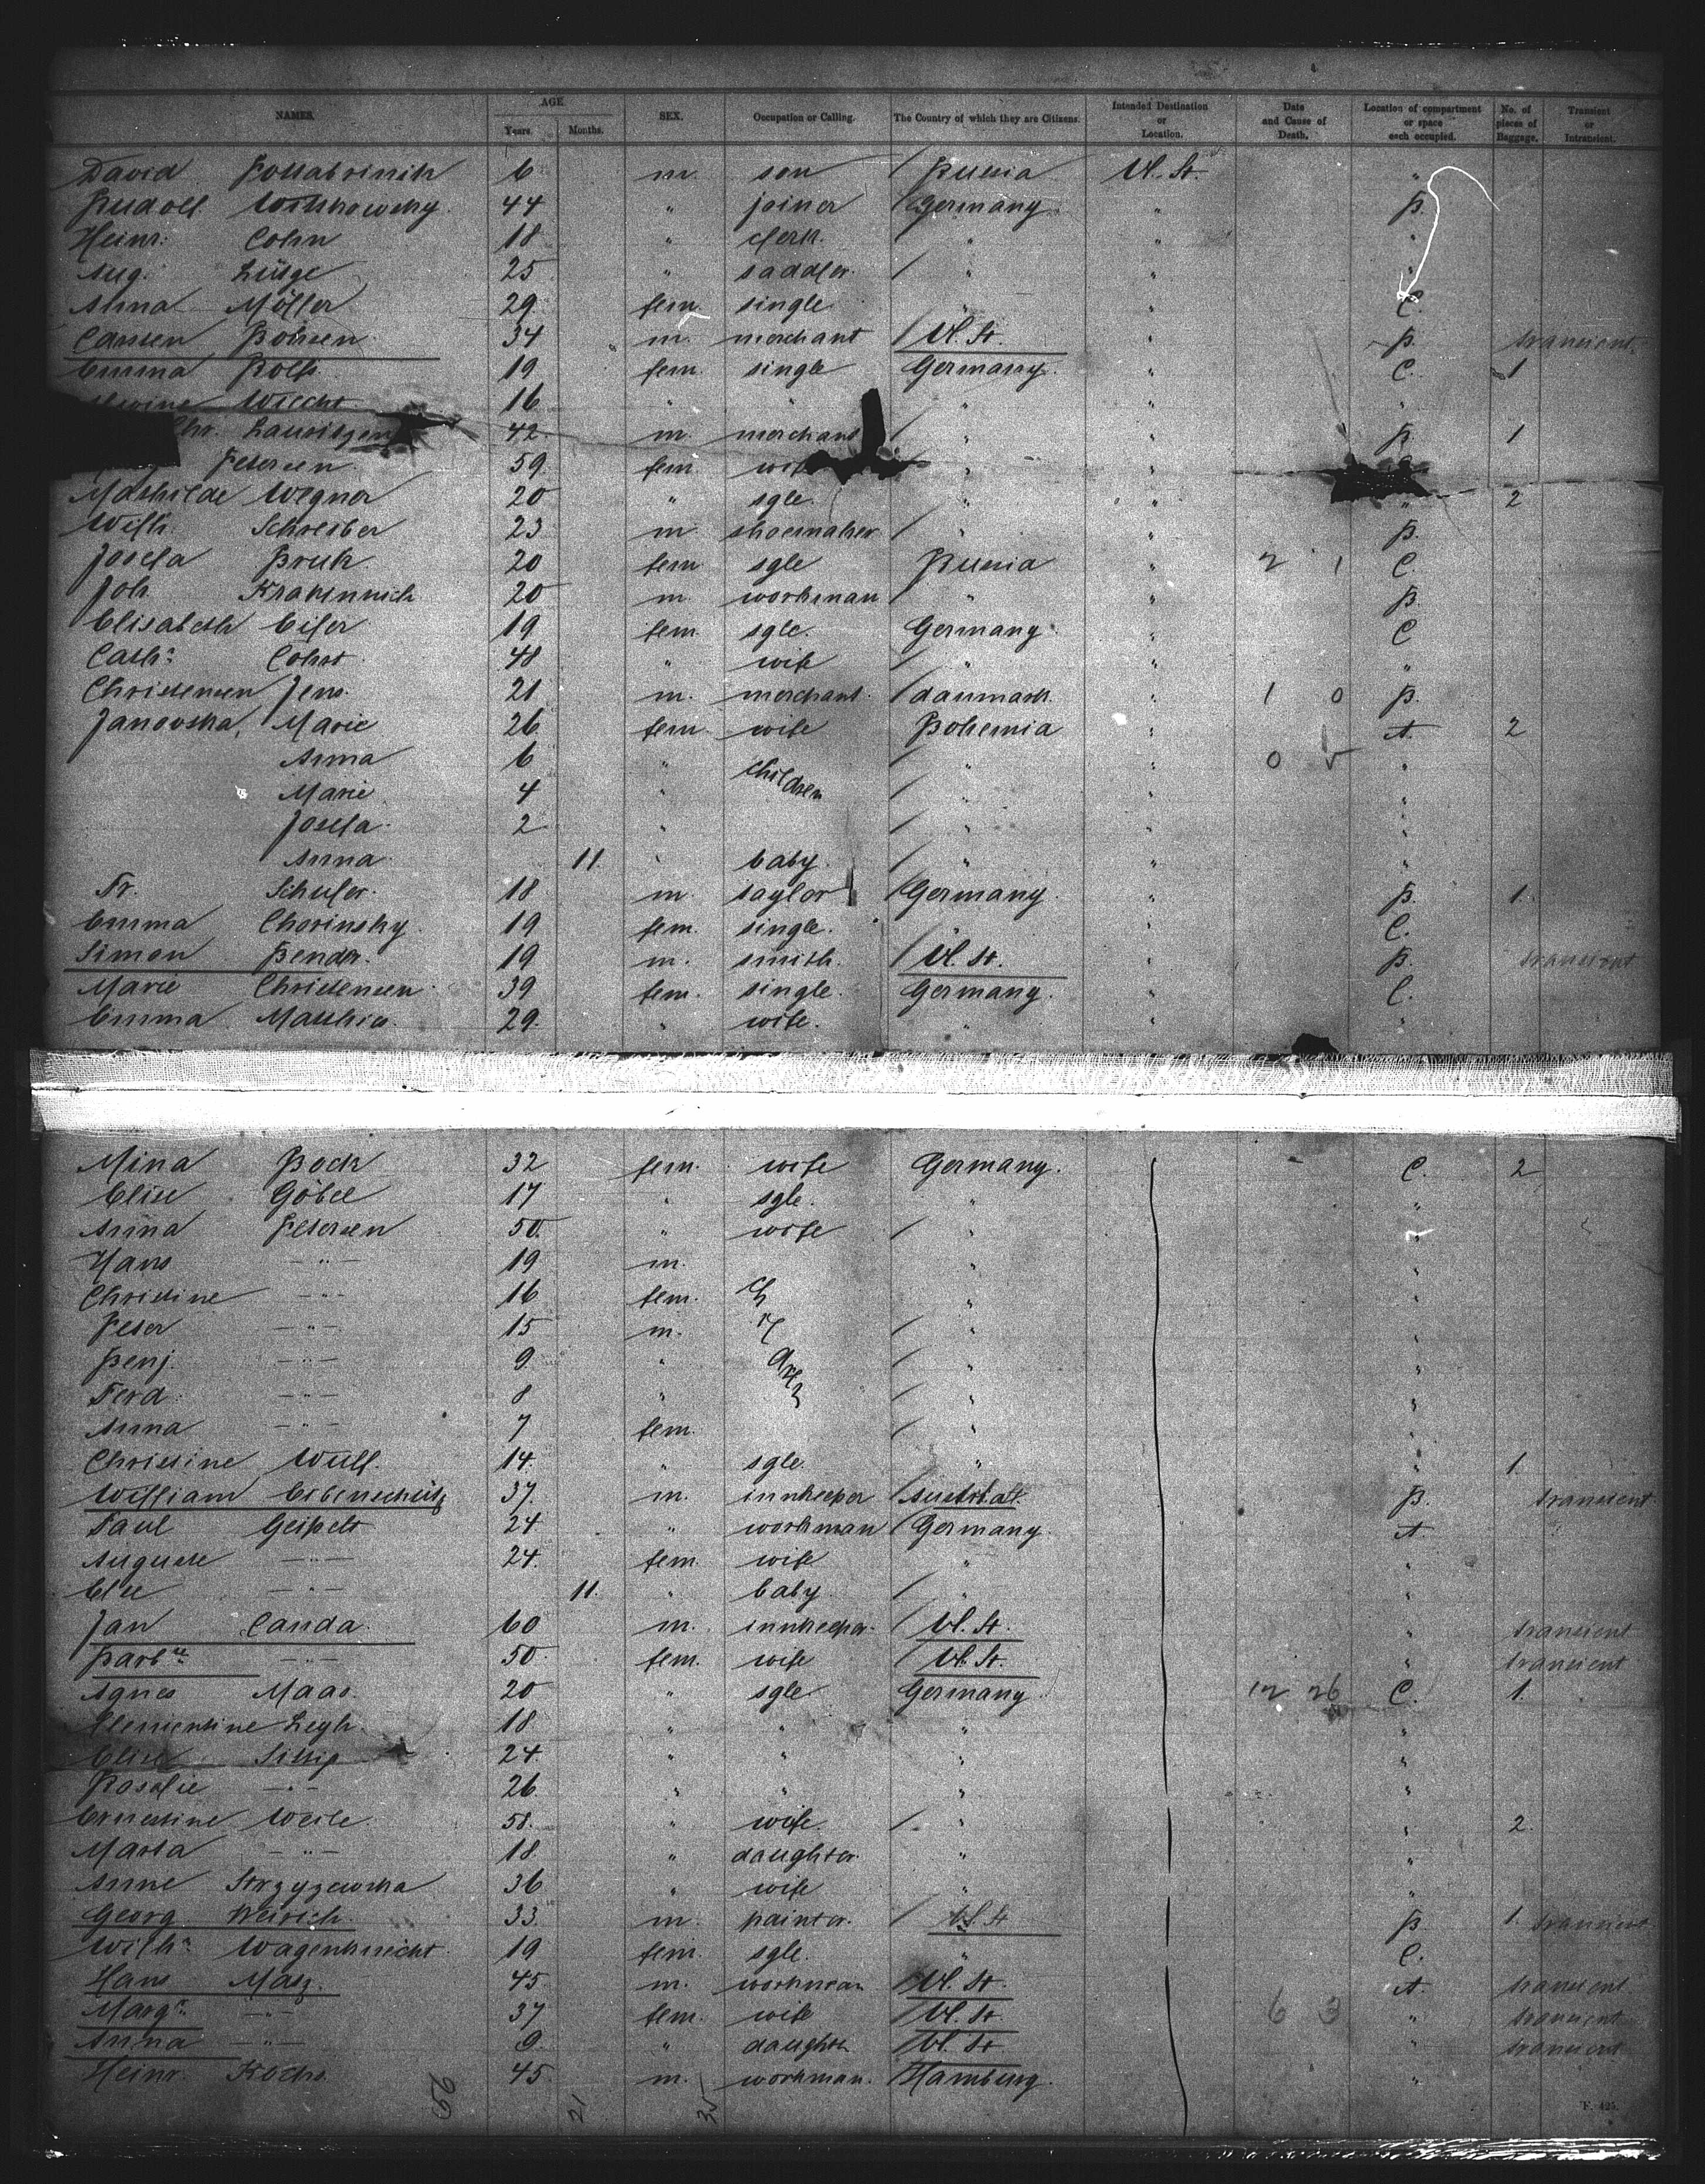 NAMES. AGE Years. Months. SEX. Occupation or Calling. The Country of which they are Citizens. Intended Destination or Location. Date and Cause of Death. Location of compartment or space each occupied. No. of pieces of Baggage. Transient or Intransient.
David 6 m. son Russia U. St. "
Rudolf 44 " joiner Germany " B.
Heinr. Cohn 18 " clerk " " "
Aug. Lütge 25 " saddler " " "
Anna Möller 29 fem. single " " C.
Carsten Boysen 34 m. merchant U. St. " B. transient
Emma Rolfs 19 fem. single Germany " C. 1
Wiecht 16 " " " " "
Chr. Lauritzen 42 m. merchant " " B. 1
Petersen 59 fem. wife " "
Mathilde Wegner 20 " sgle. " " " 2
Wilh. Schreiber 23 m. shoemaker " " B.
Josefa Bruk 20 fem sgle Russia " 2 1 C.
Joh. 20 m. workman " " B.
Elisabeth Eifer 19 fem. sgle. Germany " C
Cath. Cohrs 48 " wife " " "
Christensen Jens 21 m. merchant danmark " 1 0 B.
Janovska, Marie 26 fem. wife Bohemia " A. 2
Anna 6 " children " " 0 5 "
Marie 4 " " " "
Josefa 2 " " " "
Anna 11 " baby " " "
Fr. Schuler 18 m. taylor Germany " B. 1
Emma Chorinsky 19 fem. single. " " C.
Simon Bender 19 m. smith. U. St. " B. transient
Marie Christensen 39 fem. single. Germany. " C.
Emma Matthies 29. " wife. " " "
Mina Bock 32 fem. wife Germany. C. 2
Elise Göbel 17 " sgle. " "
Anna Petersen 50 " wife " "
Hans — " — 19 m. " "
Christine — " — 16 fem. children " "
Peter — " — 15 m. " "
Benj. — " — 9 " " "
Ferd. — " — 8 " " "
Anna — " — 7 fem. " "
Christine Wulf. 14. " sgle. " " 1
William Eibenschütz 37. m. innkeeper B. transient
Paul Geipelt 24 " workman Germany A.
Auguste — " — 24. fem. wife " "
Else — " — 11. " baby " "
Jan Canda 60 m. innkeeper U. St. " transient
Barb. — " — 50 fem. wife U. St. " transient
Agnes Maas. 20 " sgle Germany 12 26 C. 1.
Clementine Legh. 18 " " " "
Elise Sittig 24. " " " "
Rosalie — " — 26 " " " "
Ernestine Weile 58. " wife. " " 2
Marta — " — 18 " daughter " "
Anne Strzyzewska 36 " wife " "
Georg Weirich 33. m. painter. U. St B 1. transient
Wilh. Wagenknecht 19 fem. sgle. " C.
Hans Matz 45 m. workman U. St. A. transient
Marg. — " — 37 fem. wife U. St 6 3 " transient
Anna — " — 9 " daughter U. St " transient
Heinr. Kochs 45 m. workman. Hamburg. "
56 21 35
F. 425.